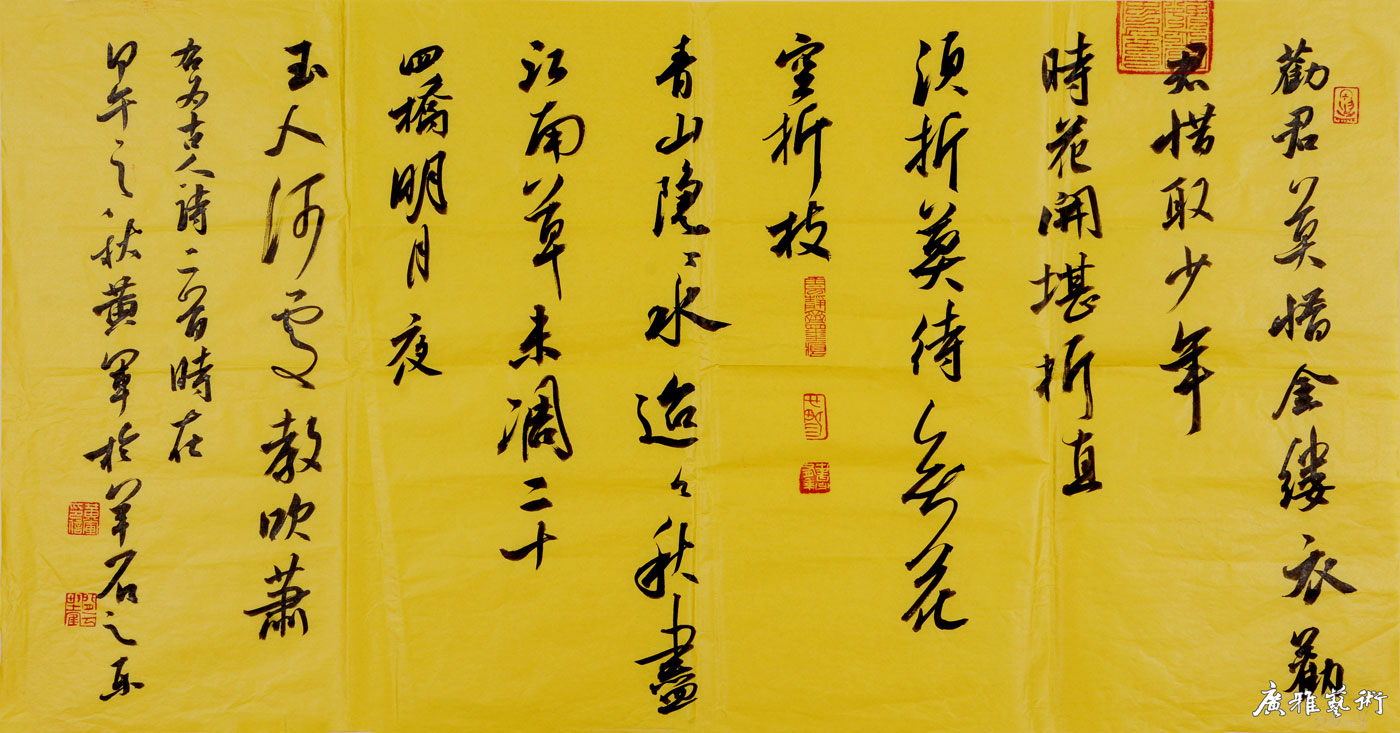 勸君莫惜金缕衣勸
君惜取少年
時花開堪折直
須折莫待無花
空折枝
青山隐々水迢々秋盡
江南草未凋二十
四橋明月夜
玉人何處教吹蕭
右为古人詩二首時在
甲午之秋黄軍於羊石之東
廣雅藝術